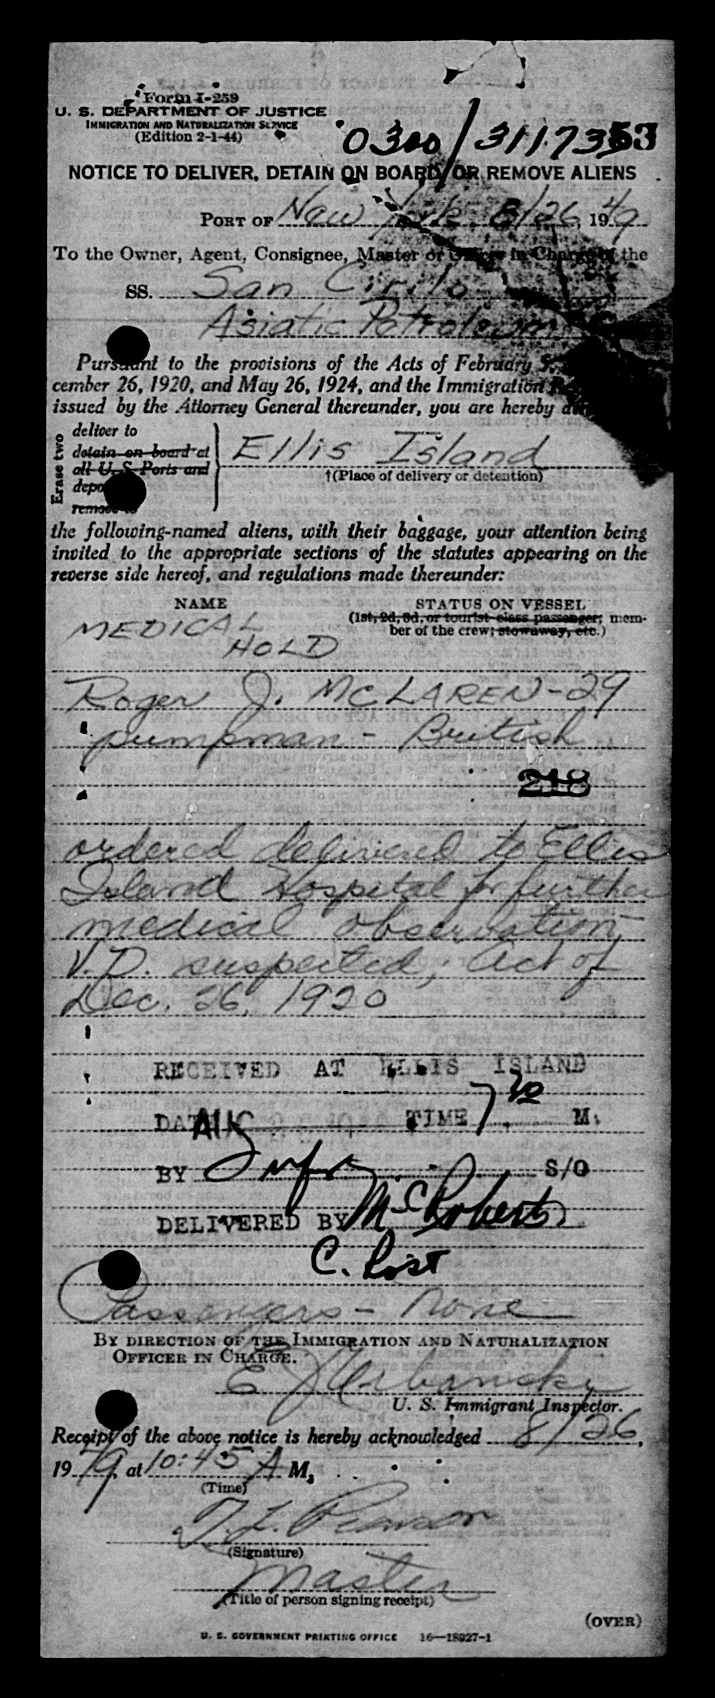 Form I-259
U. S. DEPARTMENT OF JUSTICE
IMMIGRATION AND NATURALIZATION SERVICE
(Edition 2-1-44)
0300/31173553
NOTICE TO DELIVER, DETAIN ON BOARD, OR REMOVE ALIENS
PORT OF New York 8/26, 1949
To the Owner, Agent, Consignee, Master or Officer in Charge of the
SS. San Cirilo
Asiatic Petroleum
Pursuant to the provisions of the Acts of February 5,
cember 26, 1920, and May 26, 1924, and the Immigration
issued by the Attorney General thereunder, you are hereby
Erase two
deliver to
detain on board at
all U. S. Ports and
remove to
Ellis Island
†(Place of delivery or detention)
the following-named aliens, with their baggage, your attention being
invited to the appropriate sections of the statutes appearing on the
reverse side hereof, and regulations made thereunder:
NAME STATUS ON VESSEL
(1st, 2d, 3d, or tourist class passenger; mem-
ber of the crew; stowaway, etc.)
MEDICAL
HOLD
Roger J. McLAREN-29
pumpman - British
218
ordered delivered to Ellis
Island Hospital for further
medical observation,
V.D. suspected, Act of
Dec. 26, 1920
RECEIVED AT ELLIS ISLAND
DATE AUG TIME 7 M.
BY S/O
DELIVERED BY McRoberts
C. Post
Passengers - none
BY DIRECTION OF THE IMMIGRATION AND NATURALIZATION
OFFICER IN CHARGE.
E J Urbansky
U. S. Immigrant Inspector.
Receipt of the above notice is hereby acknowledged 8/26,
1949, at 10:45 A M.
(Time)
(Signature)
Master
(Title of person signing receipt)
(OVER)
U. S. GOVERNMENT PRINTING OFFICE 16—18927-1